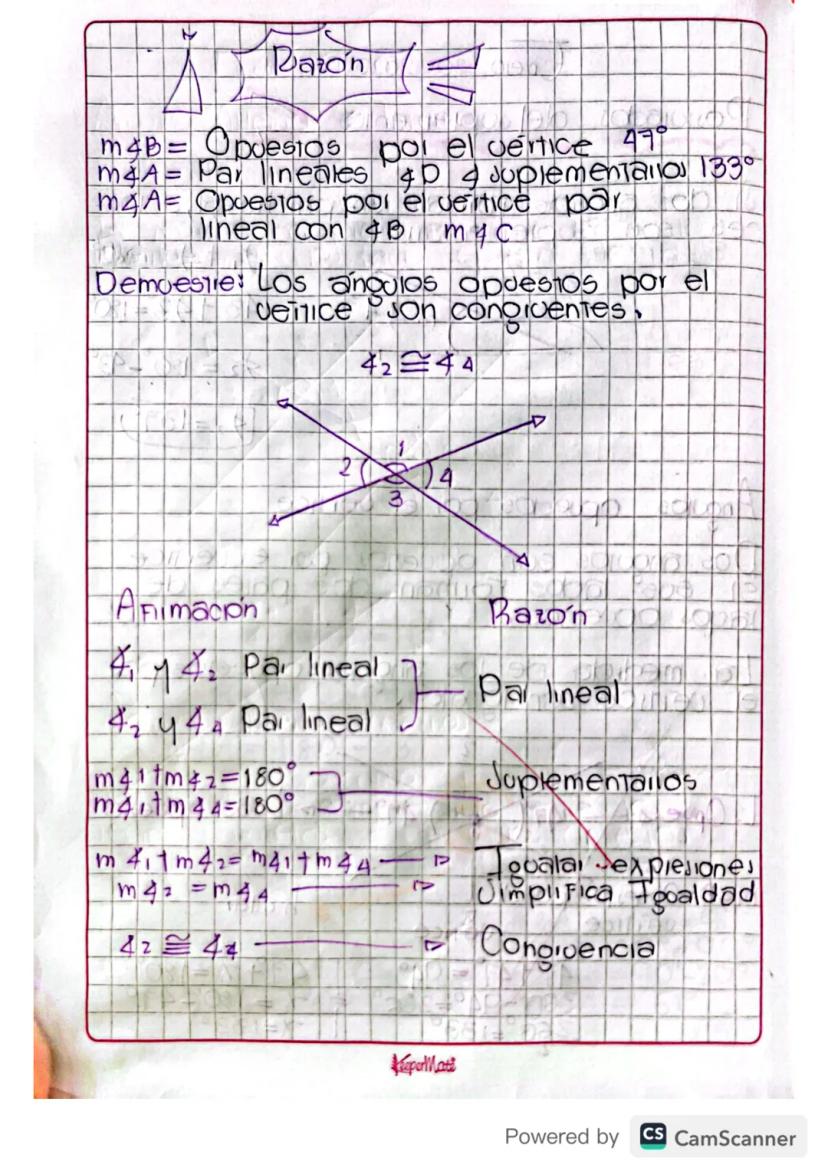 Razón
m∡B = Opuestos por el vértice 47°
m∡A = Par lineales ∡D y suplementarios 133°
m∡A = Opuestos por el vértice par
lineal con ∡B m∡C
Demuestre: Los ángulos opuestos por el
vértice, son congruentes.
∡2 ≅ ∡4
1
2 4
3
Afirmación Razón
∡1 y ∡2 Par lineal
Par lineal
∡2 y ∡4 Par lineal
m∡1+m∡2=180° Suplementarios
m∡1+m∡4=180°
m∡1+m∡2=m∡1+m∡4 Igualar expresiones
m∡2 = m∡4 Simplifica Igualdad
∡2 ≅ ∡4 Congruencia
Powered by CS CamScanner